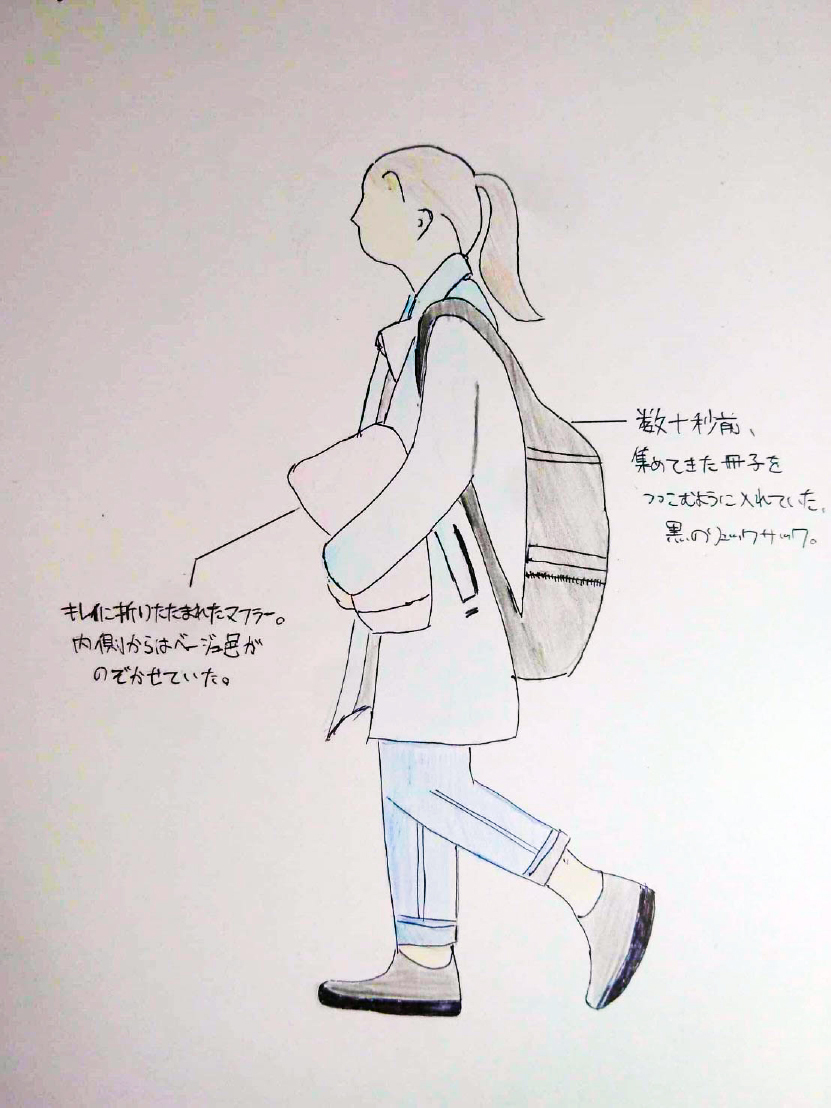 数十秒前、
集めてきた冊子を
つっこむように入れていた、
黒のリュックサック。
キレイに折りたたまれたマフラー。
内側からはベージュ色が
のぞかせていた。